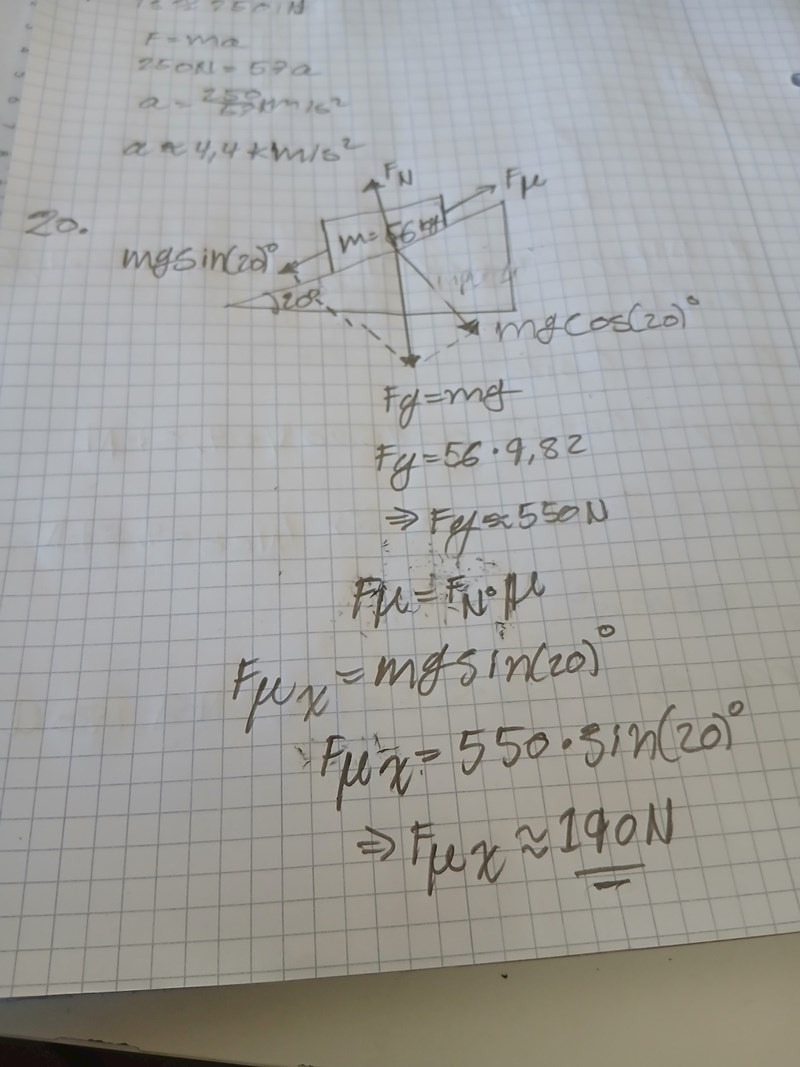 F=ma
250N=57a
a=250/57 m/s²
a≈4,4 m/s²
20.
F_N
Fμ
m=56kg
mgsin(20)°
20°
mgcos(20)°
Fg=mg
Fg=56·9,82
⇒ Fg≈550N
Fμ=F_N·μ
Fμx=mgsin(20)°
Fμx=550·sin(20)°
⇒ Fμx≈190N